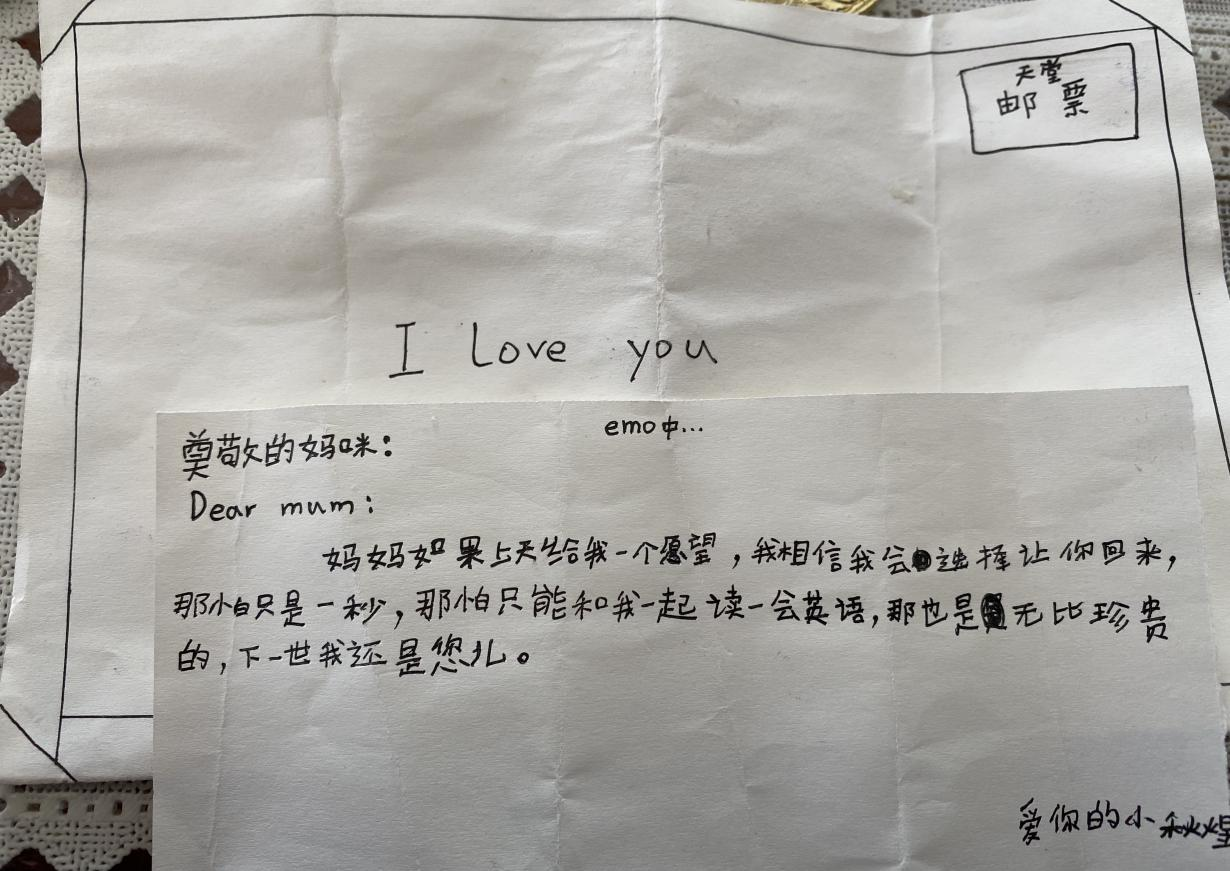 天堂
邮票
I Love you
emo中...
尊敬的妈咪：
Dear mum:
妈妈如果上天给我一个愿望，我相信我会选择让你回来，
那怕只是一秒，那怕只能和我一起读一会英语，那也是无比珍贵
的，下一世我还是您儿。
爱你的小秋煌